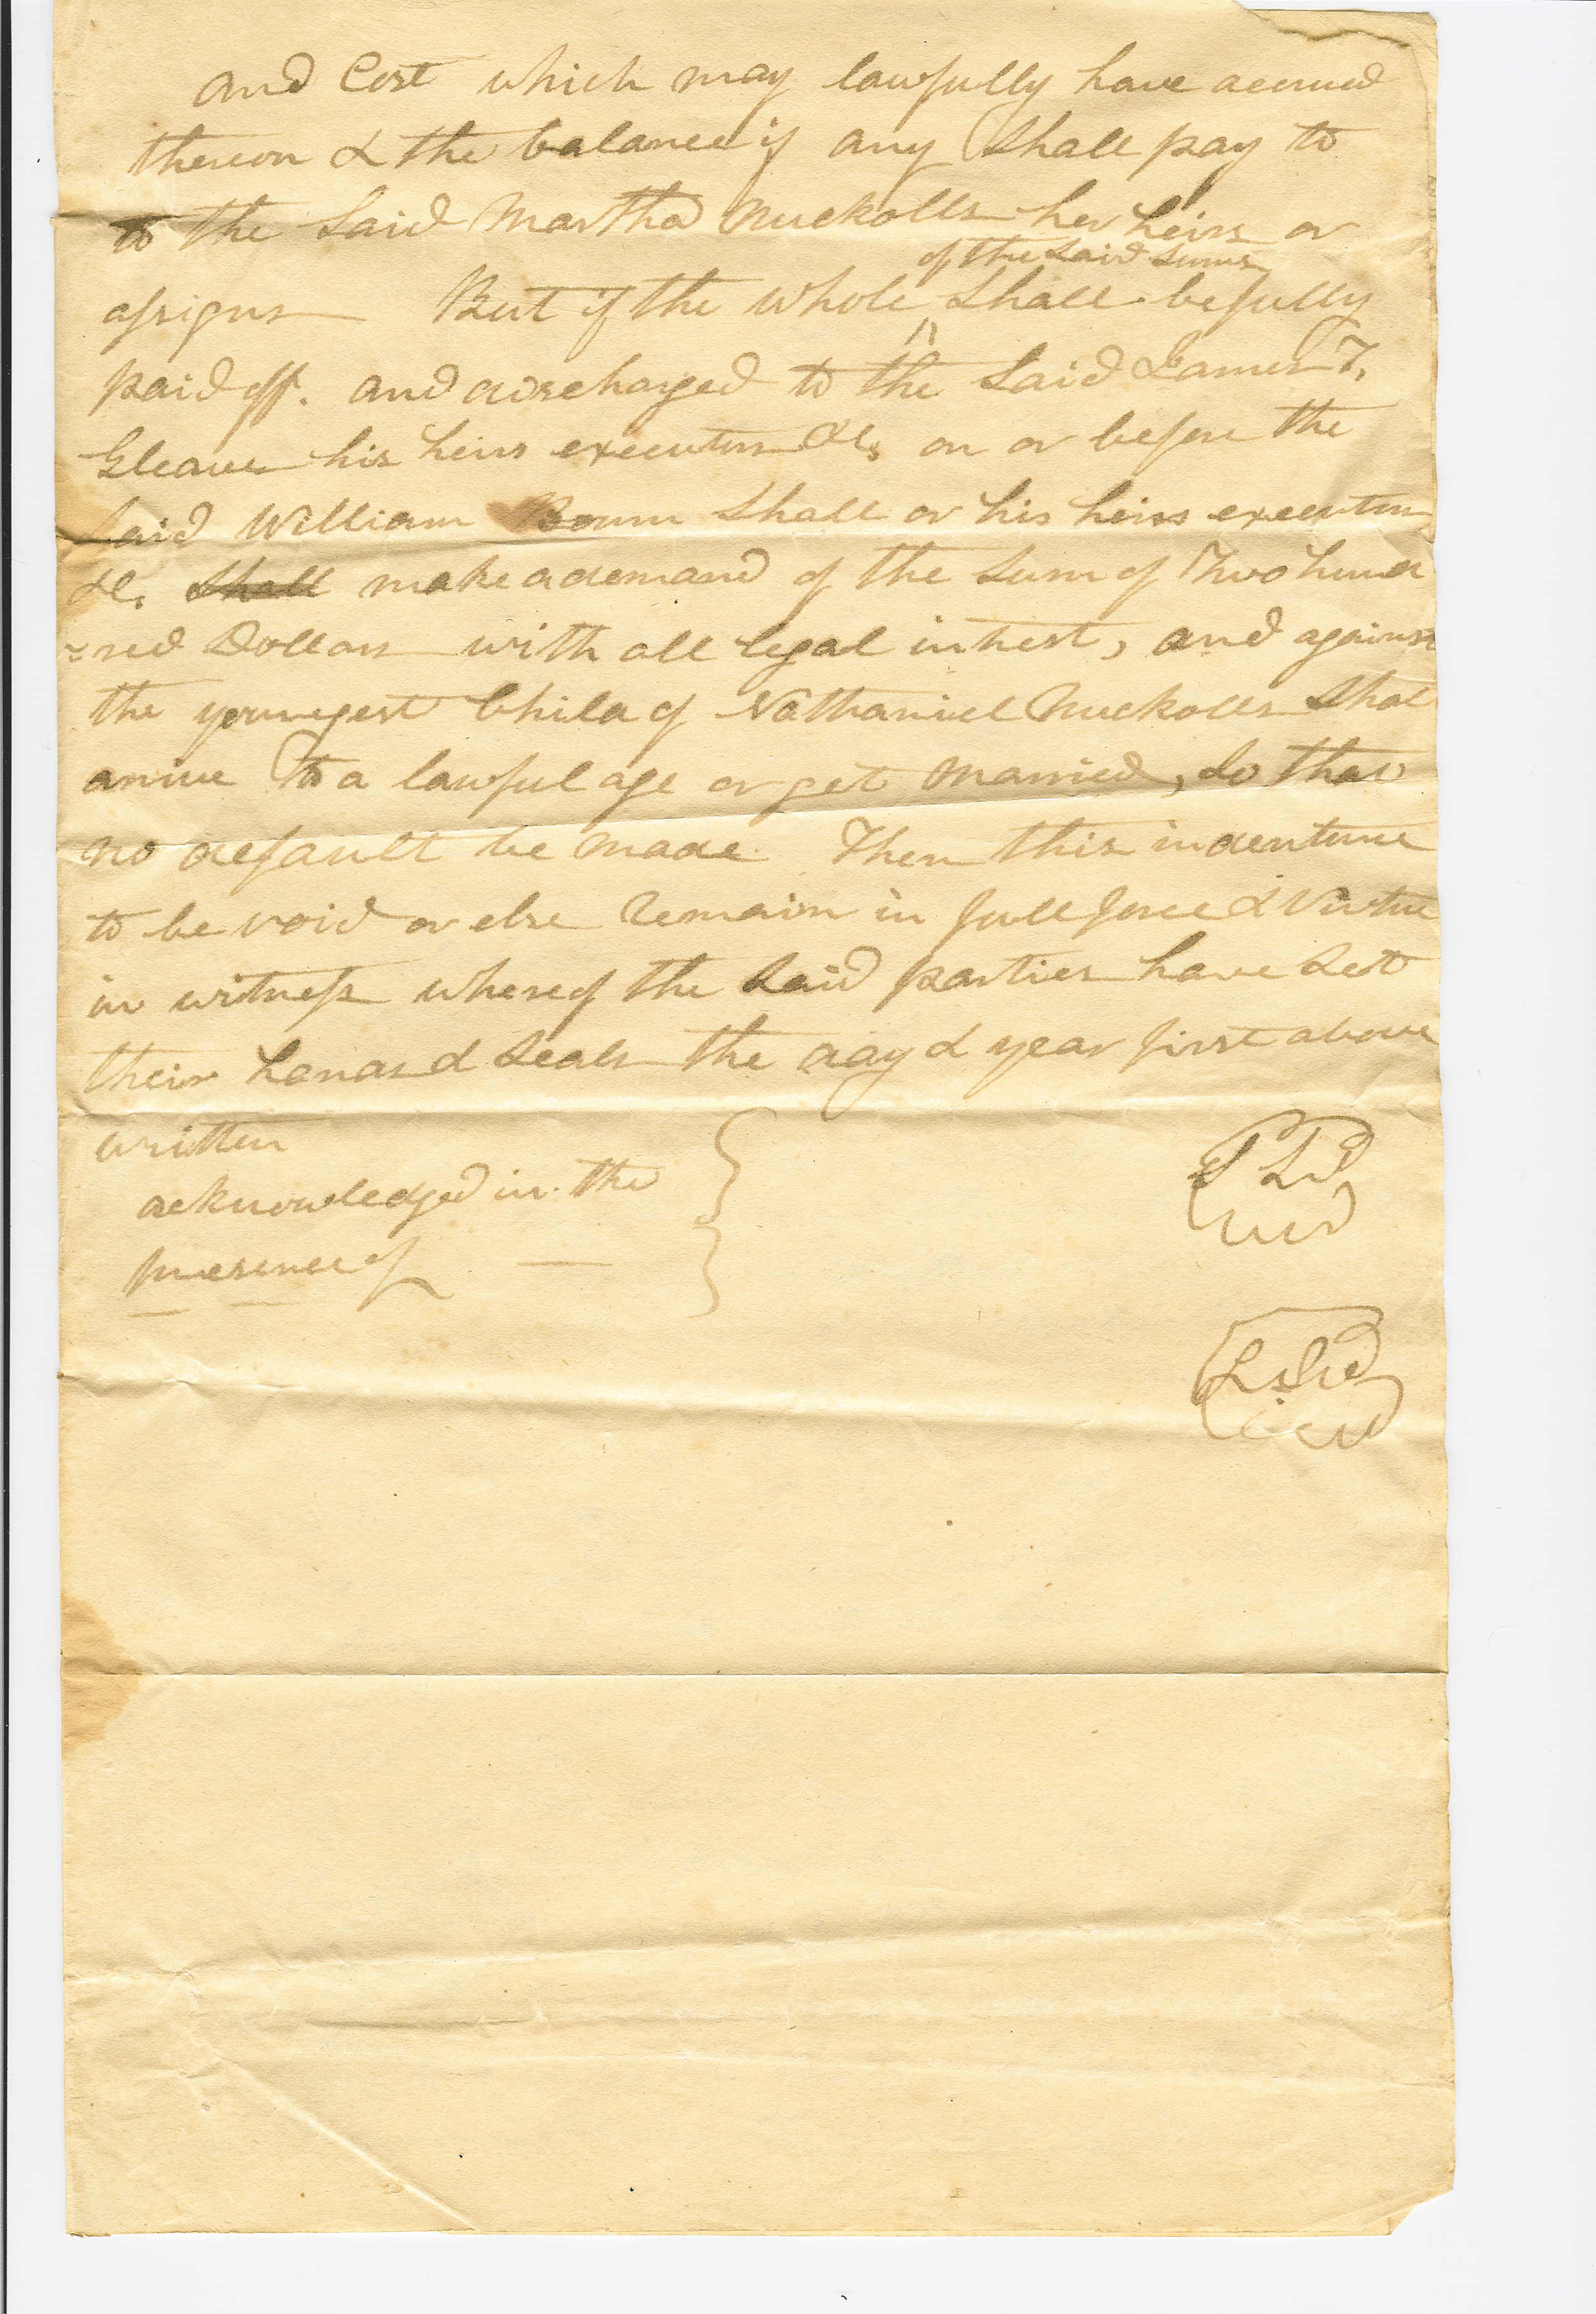 and Cost which may lawfully have accrued
thereon & the balance if any Shall pay to
to the Said Martha Nuckolls her heirs or
of the Said Sums
assigns But if the whole Shall be fully
paid off. and discharged to the Said James T.
Gleaves his heirs executors &c, on or before the
Said William Bourn Shall or his heirs executors
&c. Shall make a demand of the Sum of Two hund
=red Dollars with all legal intrest, and against
the youngest Child of Nathaniel Nuckolls Shal
arrive to a lawful age or get married, So that
no default be made Then this indenture
to be void or else Remain in full force & Virtue
in witness whereof the Said parties have Set
their hands & Seals the day & year first above
written
acknowledged in the
presence of